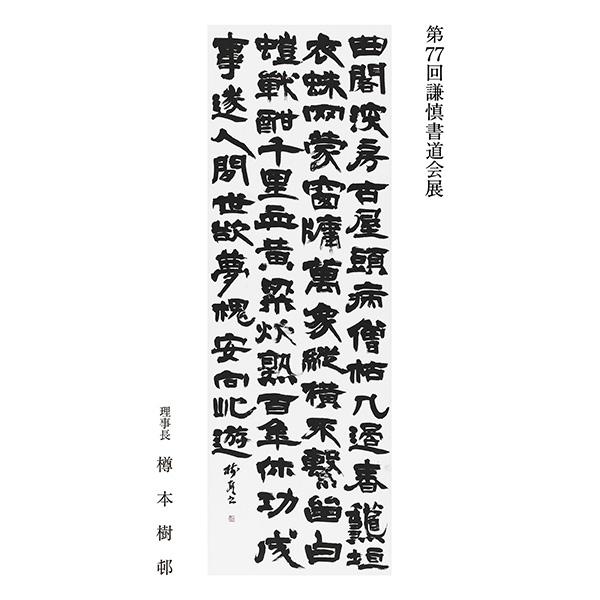 第77回謙慎書道会展
曲閣深房古屋頭病僧枯几過春龝垣
衣蛛网蒙窗牖萬象縱橫不繫留白
螘戰酣千里血黄粱炊熟百年休功成
事遂人間世欲夢槐安向此遊
理事長 樽本樹邨